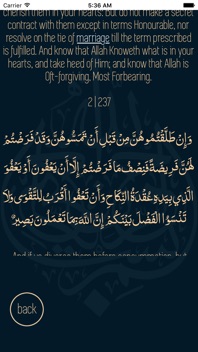 Carrier 5:36 AM
cherish them in your hearts: But do not make a secret
contract with them except in terms Honourable, nor
resolve on the tie of marriage till the term prescribed
is fulfilled. And know that Allah Knoweth what is in your
hearts, and take heed of Him; and know that Allah is
Oft-forgiving, Most Forbearing.
2|237
وَإِن طَلَّقْتُمُوهُنَّ مِن قَبْلِ أَن تَمَسُّوهُنَّ وَقَدْ فَرَضْتُمْ
لَهُنَّ فَرِيضَةً فَنِصْفُ مَا فَرَضْتُمْ إِلَّا أَن يَعْفُونَ أَوْ يَعْفُوَ
الَّذِي بِيَدِهِ عُقْدَةُ النِّكَاحِ وَأَن تَعْفُوا أَقْرَبُ لِلتَّقْوَى وَلَا
تَنسَوُا الْفَضْلَ بَيْنَكُمْ إِنَّ اللَّهَ بِمَا تَعْمَلُونَ بَصِيرٌ
And if ye divorce them before consummation, but
back